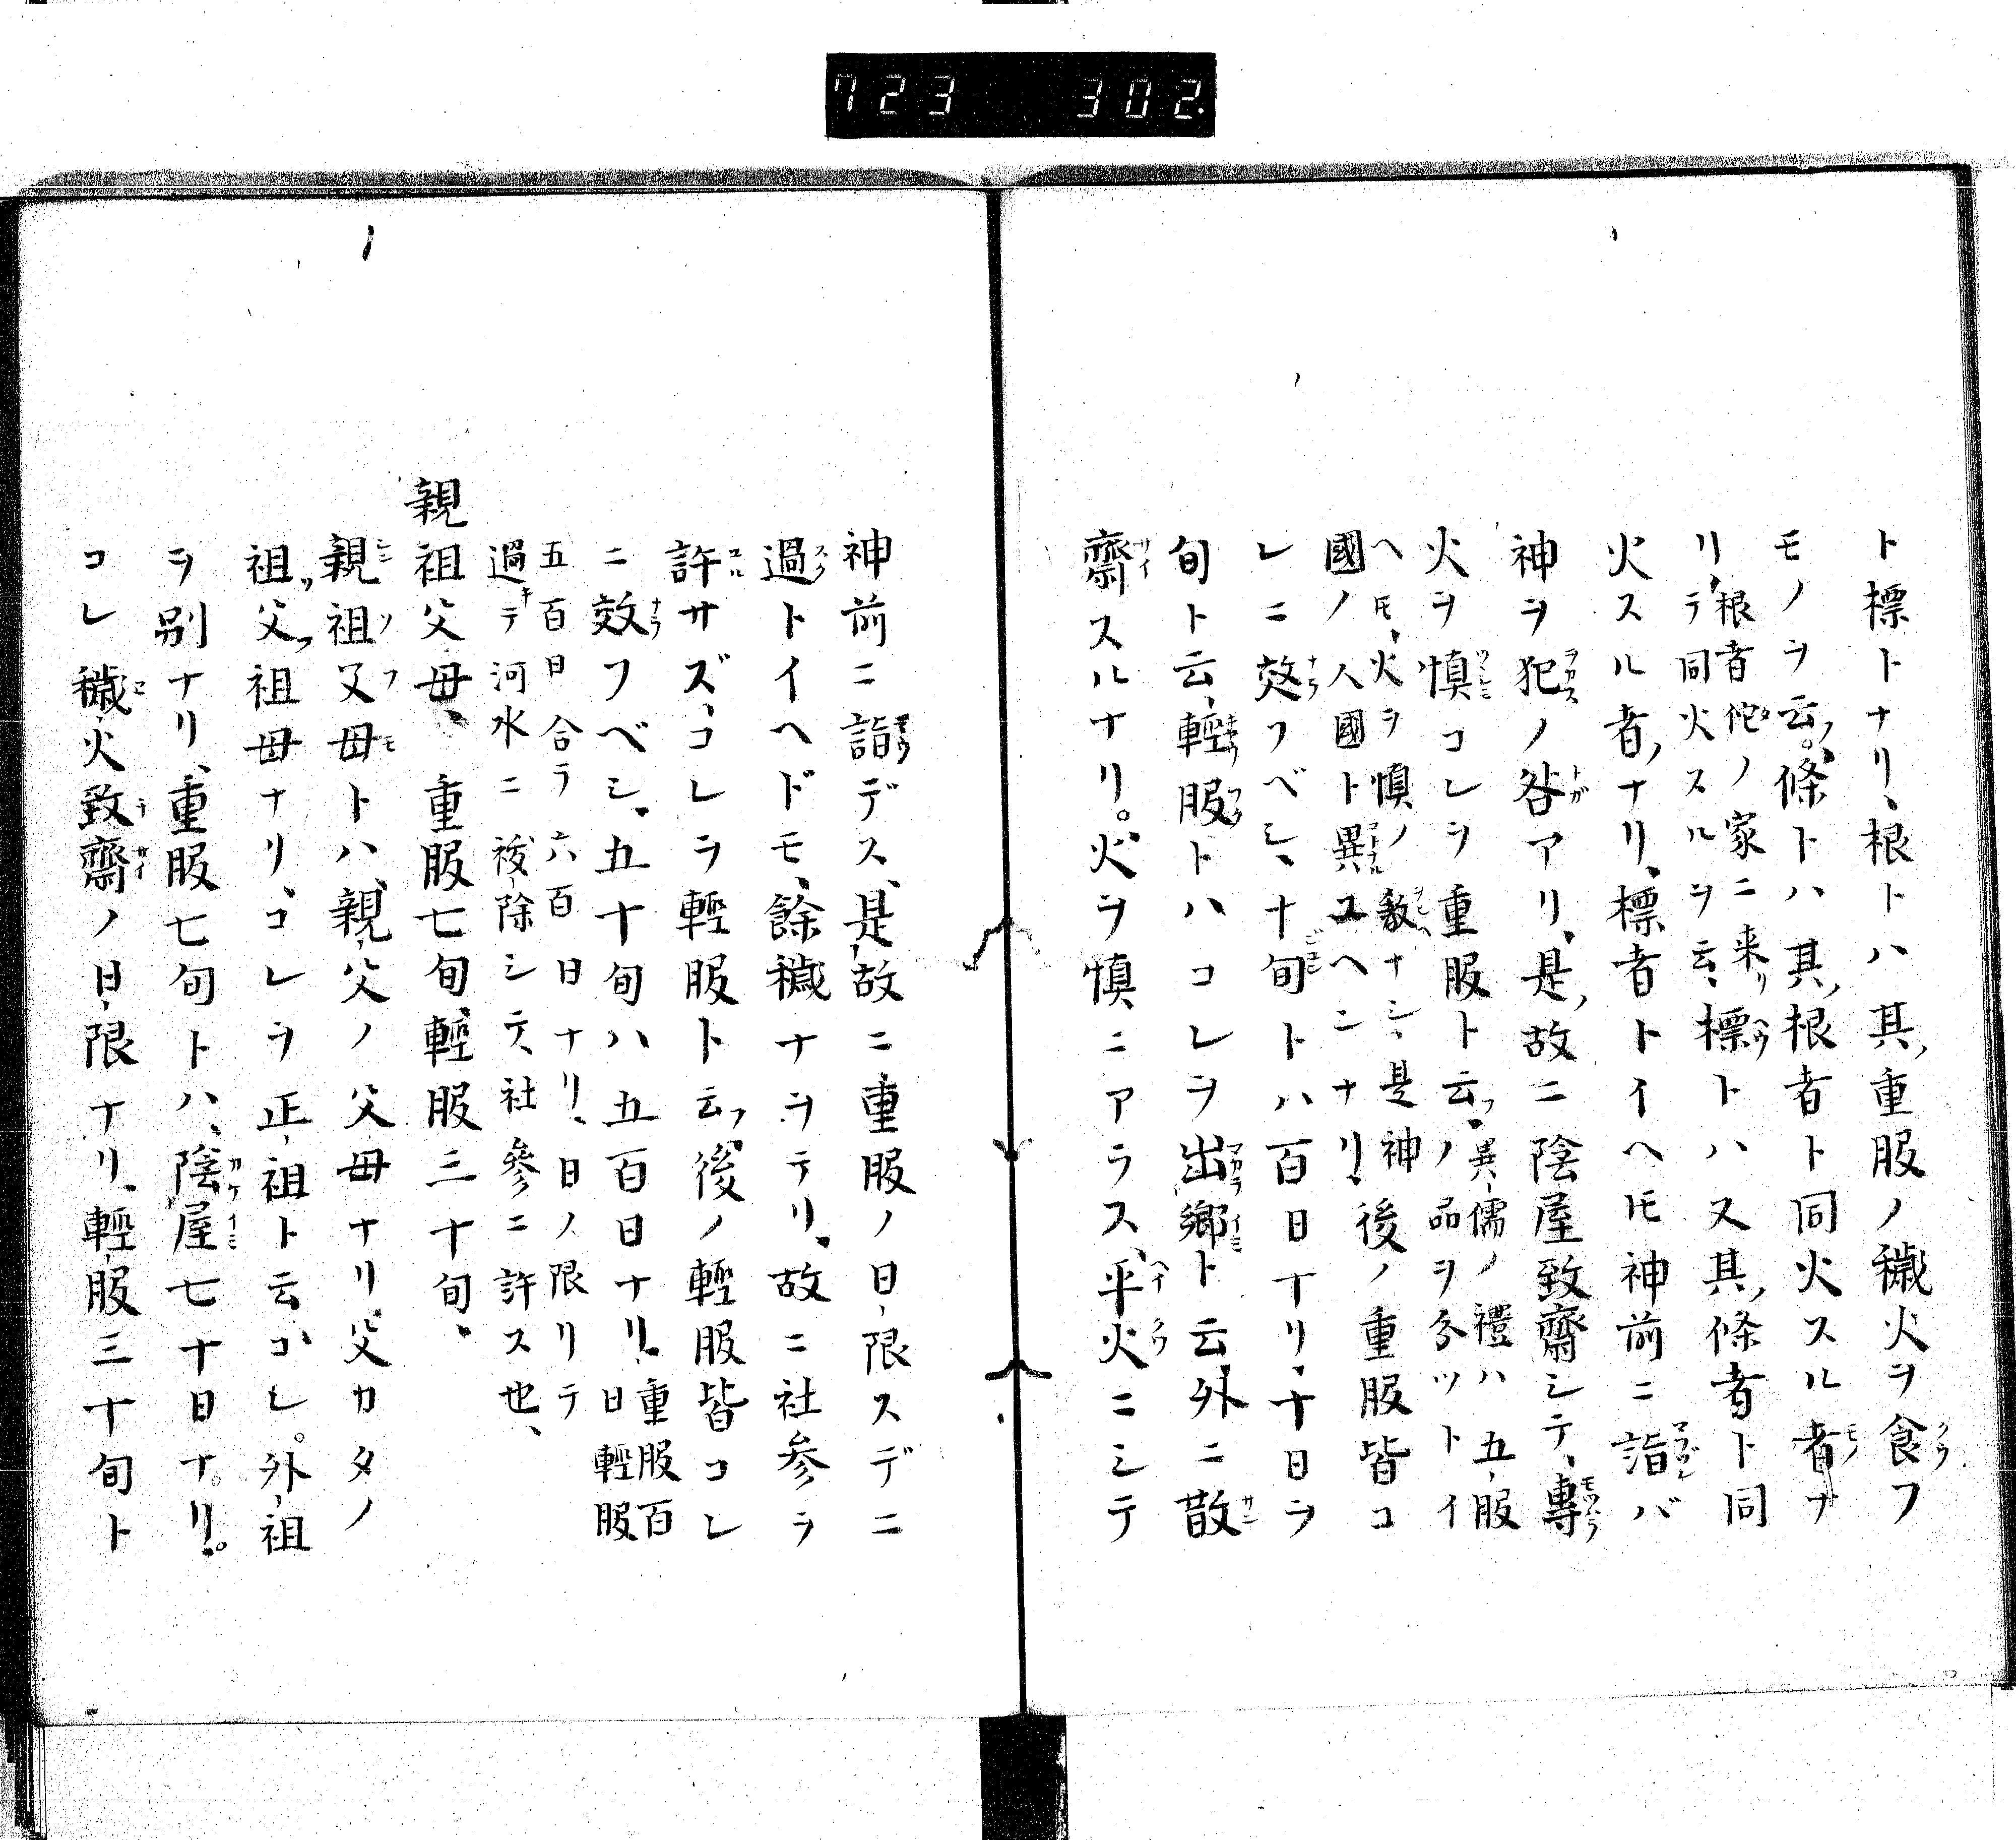 723 302
ト標トナリ、根トハ其重服ノ穢火ヲ食フ
モノヲ云フ。條トハ其根者ト同火スル者ナ
リ、根者佗ノ家ニ来リテ同火スルヲ云、標トハ又其條者ト同
火スル者ナリ、標者トイヘ𪜈神前ニ詣バ
神ヲ犯ノ咎アリ、是故ニ陰屋致齋シテ、專
火ヲ慎コレヲ重服ト云フ、異儒ノ禮ハ五服ノ品ヲ分ツトイ
ヘ𪜈、火ヲ慎ノ教ナシ、是神國ノ人國ト異ユヘンナリ、後ノ重服皆コ
レニ效フベシ、十旬トハ百日ナリ、十日ヲ
旬ト云、輕服トハコレヲ出郷ト云、外ニ散
齋スルナリ。火ヲ慎ニアラス、平火ニシテ
神前ニ詣デス、是故ニ重服ノ日限スデニ
過トイヘドモ、餘穢ナヲテリ、故ニ社参ヲ
許サズ、コレヲ輕服ト云フ、後ノ輕服皆コレ
ニ效フベシ、五十旬ハ五百日ナリ、重服百日輕服
五百日合テ六百日ナリ、日ノ限リテ
過キテ河水ニ祓除シテ、社參ニ許ス也、
親祖父母、重服七旬、輕服三十旬、
親祖父母トハ、親父ノ父母ナリ、父カタノ
祖父祖母ナリ、コレヲ正祖ト云、コレ。外祖
ヲ別ナリ、重服七旬トハ、陰屋七十日ナリ。
コレ穢火致齋ノ日限ナリ、輕服三十旬ト